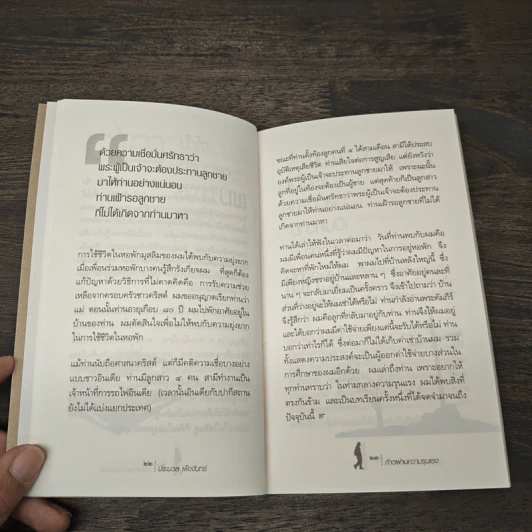 ด้วยความเชื่อมั่นศรัทธาว่า
พระผู้เป็นเจ้าจะต้องประทานลูกชาย
มาให้ท่านอย่างแน่นอน
ท่านเฝ้ารอลูกชาย
ที่ไม่ได้เกิดจากท่านมาหา
การใช้ชีวิตในหอพักมุสลิมของผมได้พบกับความยุ่งยาก
เมื่อเพื่อนร่วมหอพักบางคนรู้สึกรังเกียจผม ที่สุดก็ต้อง
แก้ปัญหาด้วยวิธีการที่ไม่คาดคิดคือ การรับความช่วย
เหลือจากครอบครัวชาวคริสต์ ผมขออนุญาตเรียกท่านว่า
แม่ ตอนนั้นท่านอายุเกือบ ๘๐ ปี ผมไปพักอาศัยอยู่ใน
บ้านของท่าน ผมตัดสินใจเพื่อไม่ให้พบกับความยุ่งยาก
ในการใช้ชีวิตในหอพัก
แม้ท่านนับถือศาสนาคริสต์ แต่ก็มีคติความเชื่อบางอย่าง
แบบชาวอินเดีย ท่านมีลูกสาว ๔ คน สามีทำงานเป็น
เจ้าหน้าที่การรถไฟอินเดีย (เวลานั้นอินเดียกับปากีสถาน
ยังไม่ได้แบ่งแยกประเทศ)
๒๒
ขณะที่ท่านตั้งท้องลูกคนที่ ๔ ได้สามเดือน สามีได้ประสบ
อุบัติเหตุเสียชีวิต ท่านเสียใจต่อการสูญเสีย แต่ยังหวังว่า
องค์พระผู้เป็นเจ้าจะประทานลูกชายมาให้ เพราะฉะนั้น
ลูกที่อยู่ในท้องจะต้องเป็นผู้ชาย แต่สุดท้ายก็เป็นลูกสาว
ด้วยความเชื่อมั่นศรัทธาว่าพระผู้เป็นเจ้าจะต้องประทาน
ลูกชายมาให้ท่านอย่างแน่นอน ท่านเฝ้ารอลูกชายที่ไม่ได้
เกิดจากท่านมาหา
ท่านได้เล่าให้ฟังในเวลาต่อมาว่า วันที่ท่านพบกับผมคือ
ผมมีเพื่อนคนหนึ่งที่รู้ว่าผมมีปัญหาในการอยู่หอพัก จึง
คิดจะหาที่พักใหม่ให้ผม พาผมไปที่บ้านหลังใหญ่นี้ ซึ่ง
มีเพียงหญิงชราอยู่บ้านและหลาน ๆ ซึ่งอาศัยอยู่คนละที่
นาน ๆ จะกลับมาเยี่ยมเป็นครั้งคราว จึงเข้าไปถามว่า บ้าน
ส่วนที่ว่างอยู่จะให้ผมเช่าได้หรือไม่ ท่านกำลังอ่านพระคัมภีร์
จึงรู้สึกว่า ผมคือลูกที่กลับมาอยู่กับท่าน ท่านจึงให้ผมอยู่
และได้บอกว่าผมมีค่าใช้จ่ายเพียงแค่นี้จะรับได้หรือไม่ ท่าน
บอกว่าเท่าไรก็ได้ ซึ่งต่อมาก็ไม่ได้เก็บค่าเช่าบ้านผม รวม
ทั้งแสดงความประสงค์จะเป็นผู้ออกค่าใช้จ่ายบางส่วนใน
การศึกษาของผมอีกด้วย ผมเล่าถึงท่าน เพราะอยากให้
ทุกท่านทราบว่า ในท่ามกลางความรุนแรง ผมได้พบสิ่งที่
ตรงกันข้าม และเป็นบทเรียนครั้งหนึ่งที่ได้จดจำมาจนถึง
ปัจจุบันนี้
๒๓ ก้าวผ่านความรุนแรง